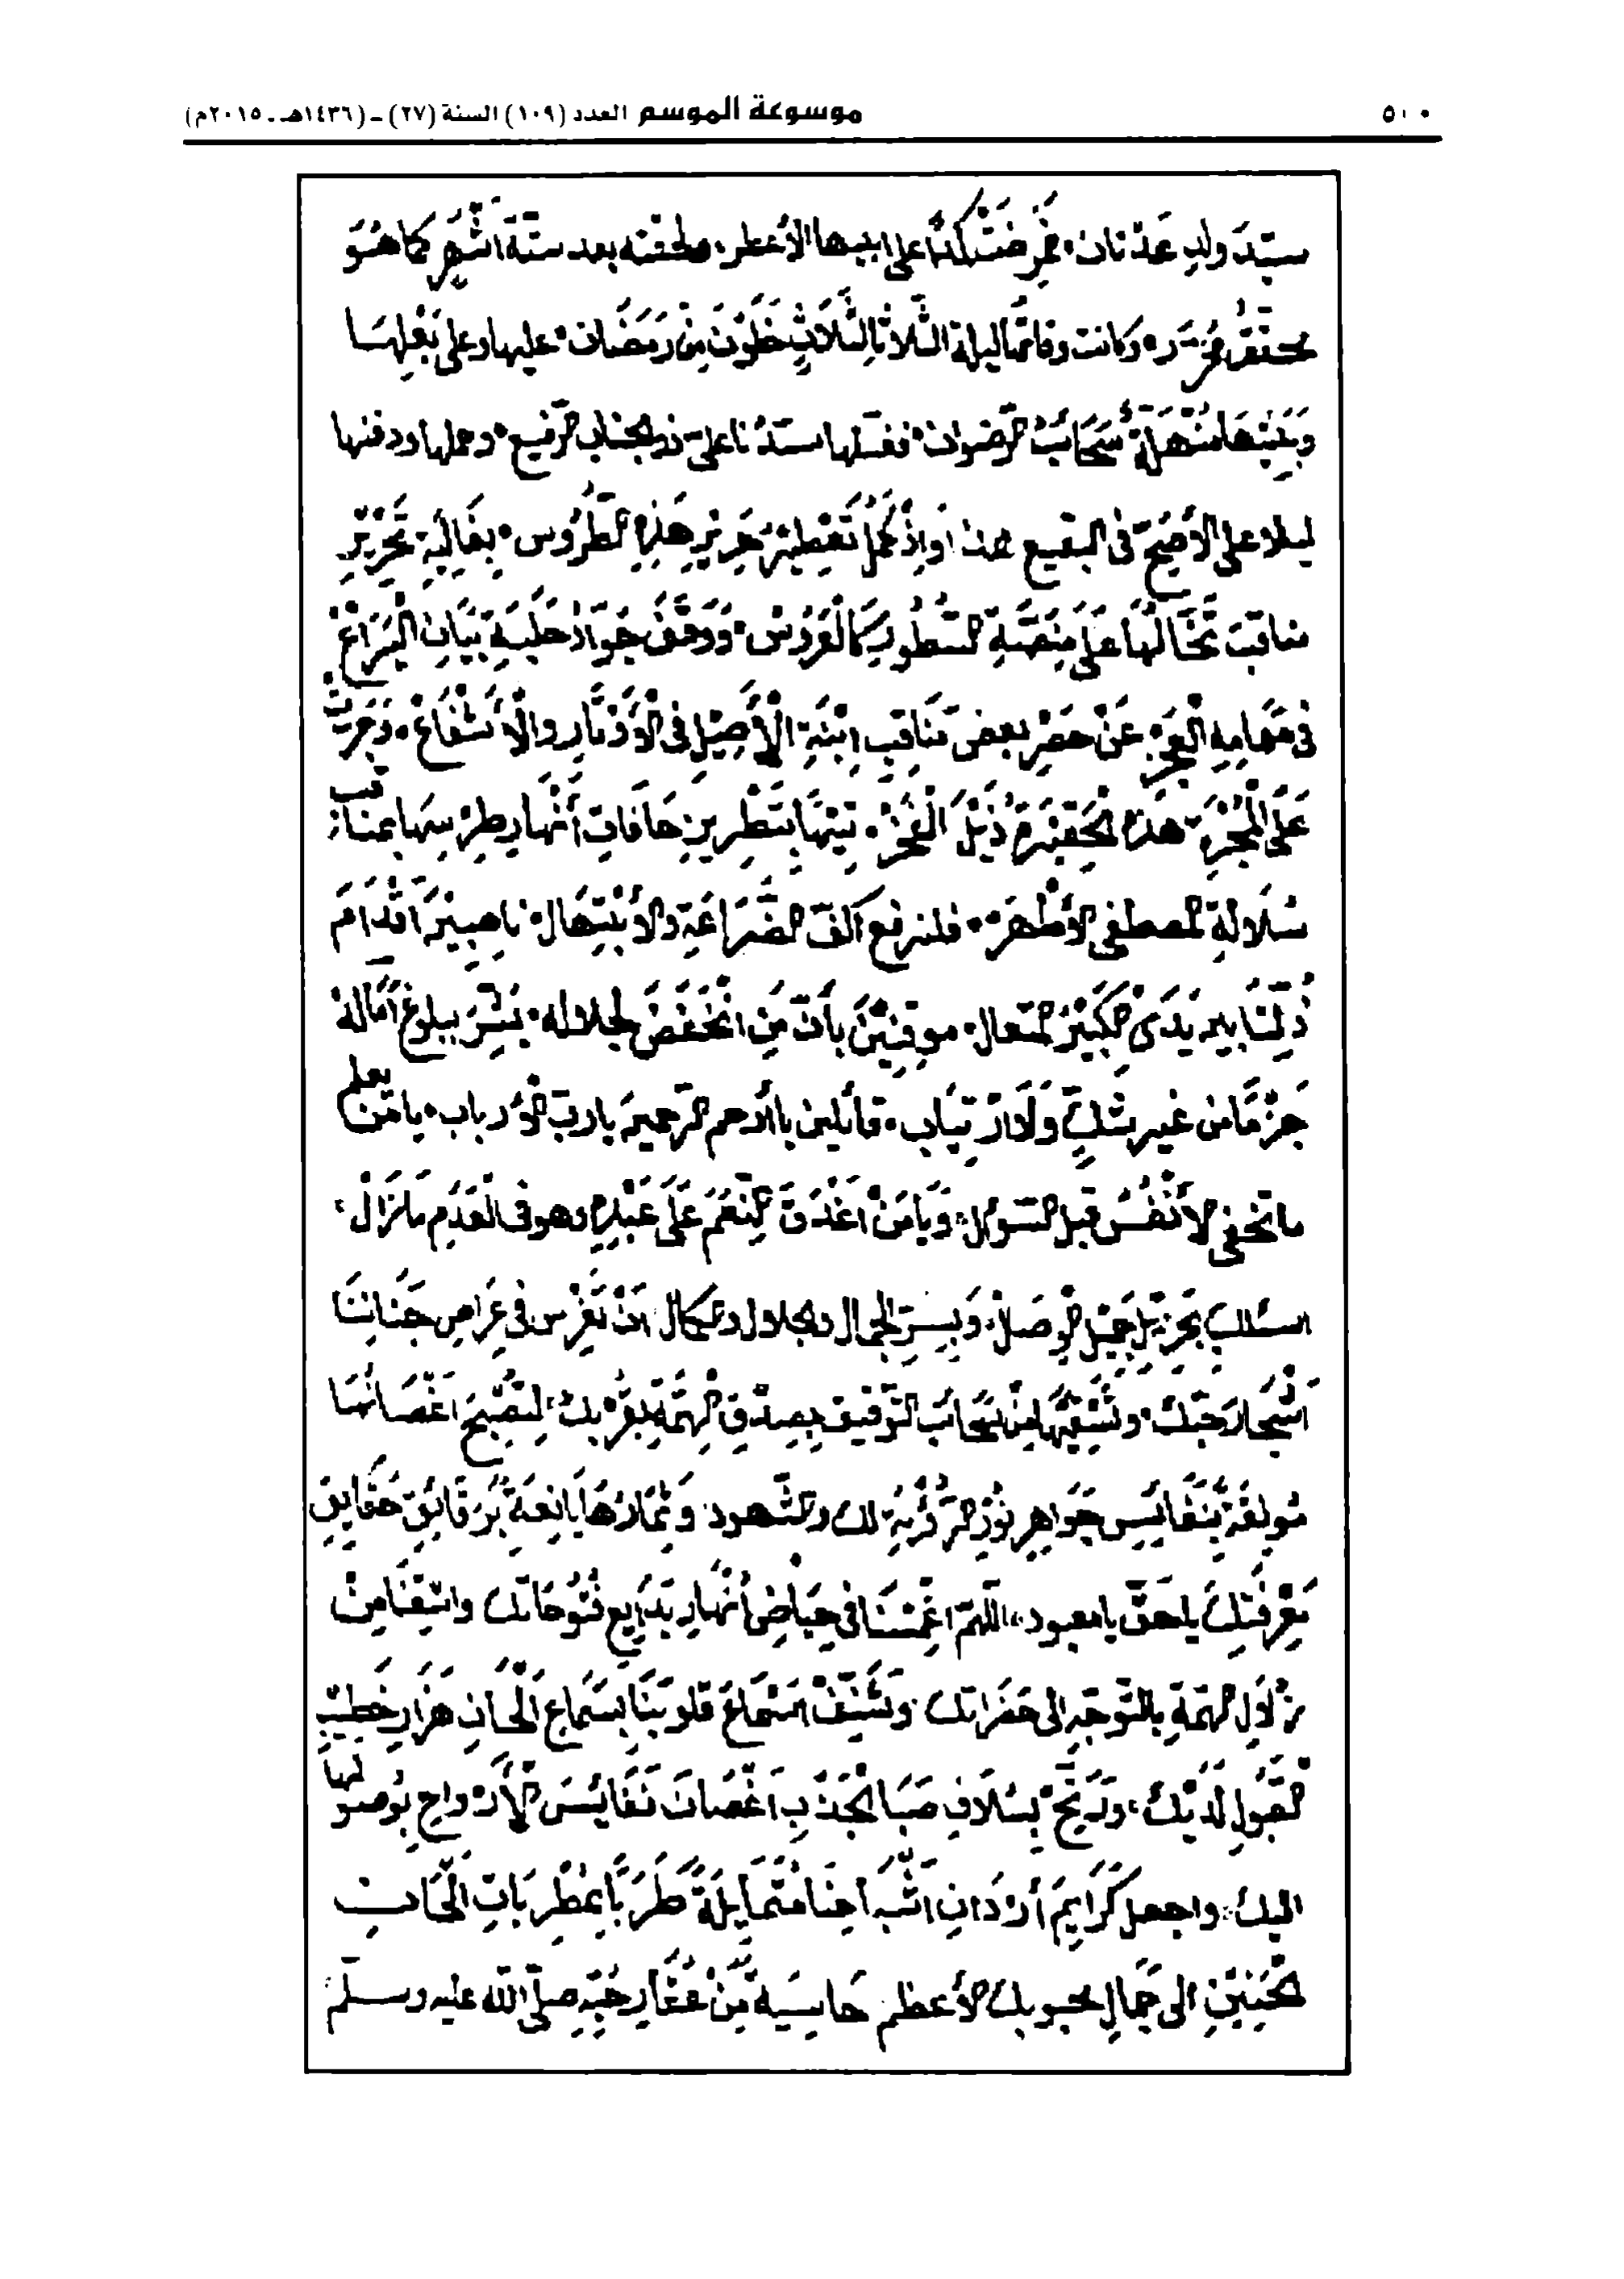 ٥٠٠ موسوعة الموسم العدد (١٠٩) السنة (٢٧) - (١٤٣٦هـ ـ ٢٠١٥م)
سيّدَ ولدِ عَدْنان، فمرِضَتْ كمَدًا على ابيها الأعطر، ولحقته بعد ستّة اشْهُرٍ كما هُوَ
محقَّقٌ مُحَرَّر، وكانت وفاتُها ليلة الثّلاثا لِثَلاثٍ خَلَوْنَ مِنْ رَمَضَان، عليها وعلى بَعْلِهَا
وَبَنِيْهَا مُنْهَلَّةُ سَحَائبُ الرّضوان، فغسّلها سيّدُنا عليّ ذو الجناب الرّفيع، وحملها ودفنها
ليلا على الأصَحّ في البقيع هذا وَاِذْ كَمُلَ تَعْطِيْرُ حَرِيْرِ هَذِهِ الطُّرُوس، بِغَالِيَةِ تَحْرِيْرِ
مناقبَ تَخَالُهَا عَلَى مِنَصَّةِ السُّطُورِ كَالْعَرُوسْ، وَوَقَفَ جَوَادُ حَلْبَةِ بَيَانِ الْيَرَاعْ،
في مَهَامِهِ الْعَجْزِ عَنْ حَصْرِ بعضِ مَنَاقِبِ ابْنَةِ الْأَصِيْلِ في الْأَوْتَارِ وَالْأَشْفَاعْ، وَجَرَّتْ
عَلَى الْمَجَرَّةِ هَذِهِ الْحَقِيْرَةُ ذَيْلَ الْفَخْرْ، تِيْهًا بِتَطْرِيزِ حَافَاتِ أَنْهَارِ طِرْسِهَا بمناقب
سُلَالَةِ المصطفى الأَطْهَرْ، فلنرفع أكُفّ الضَّرَاعَةِ والأبْتِهَال، ناصبينَ اَقْدَامَ
ذُلِّنَا بين يَدَيِ الْكَبِيْرِ المتعال، موقنِيْنَ بأنّ مَنِ انْخَفَضَ لجلاله، بُشِّرَ ببلوغ اَمَالهْ
جَزْمًا من غير شكٍّ وَلَا ارْتِيَاب، قائلين يا أرحم الرّحمينَ يا ربّ الأرباب، يا مَنْ يعلم
ما تخفى الأَنْفُسُ قبل السّؤال، وَيَا مَنْ اَغْدَقَ النِّعَمَ عَلَى عَبْدِهِ وهو في الْعَدَمِ مَا يَزَالْ،
اسئلك بجَزِيْلِ جَمِيْلِ الْوِصَالْ، وَبِسِرّ الجمال والجلال والكمال اَنْ تَغْرِسَ في عِرَاصِ جَنَانِنَا
اَشْجَارَ حُبّكَ، وتَسْقِيَهَا مِنْ سَحَائبِ التّوفيقِ بِصِدْقِ الْهِمّةِ بِقُرْبِكَ، لِتُصْبِحَ اَغْصَانُهَا
مُونِقَةً بِنَفَائِسِ جَوَاهِرِ نُوْرِ الرُّؤْيَةِ لك والشُّهود، وَثِمَارُهَا يَانِعَةً بِرَقَائِقِ حَقَايِقِ
مَعْرِفَتِكَ يا حقّ يا معبود، اللّهمّ اغْمِسْنَا في حِيَاضِ أَنْهَارِ بَدَايِعِ فُتُوحَاتِكَ واسْقِنَا مِنْ
زُلَالِ الهِمّةِ بالتّوجّهِ الى حَضَرَاتِكَ، وشَنِّفْ اسْمَاعَ قلوبِنَا بِسَمَاعِ اَلْحَانِ هَزَارِ خَطِيْبِ
القَبُولِ لَدَيْكَ، وَرَنّحْ بِسُلَافِ صَبَا الْجَذْبِ اَغْصَانَ نَفَائِسَ الْأَرْوَاحِ بِوُصُولِهَا
اليك، واجعل كَرَايِمَ أَرْدَانِ اَشْبَاحِنَا مُتَمَايِلَةً طَرَبًا بِمُطْرِبَاتِ الْحَانِ
الحَنِيْنِ الى جَمَالِ محبوبك الأعظم حَاسِيَةً مِّنْ عُقَارِ حُبِّهِ صلّى اللّه عليه وسلّم